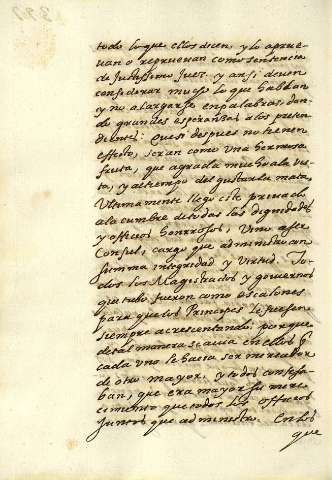 todo lo que ellos dicen, y lo aprue-
uan o repruevan como sentencia
de Justissimo Juez. y ansi deuen
considerar mucho lo que hablan
y no alargarse en palabras, dan-
do grandes esperanzas a los preten
dientes: Que si despues no tienen
effecto, seran como vna hermosa
fruta, que agrada mucho a la vis-
ta, y al tiempo del gustarla mata.
Vltimamente llego este priuado
a la cumbre de todas las dignidades
y officios honrrosos, Vino a ser
Consul, cargo que administro con
summa integridad y virtud. To-
dos los Magistrados y gouiernos
que tubo fueron como escalones
para que los Principes le fuesen
siempre acresentando; porque
de tal manera se auia en ellos q̃
cada vno le hacia ser merecedor
de otro mayor. y todos confesa-
ban, que era mayor su mere-
cimiento que todos los officios
juntos que administro. En los
que